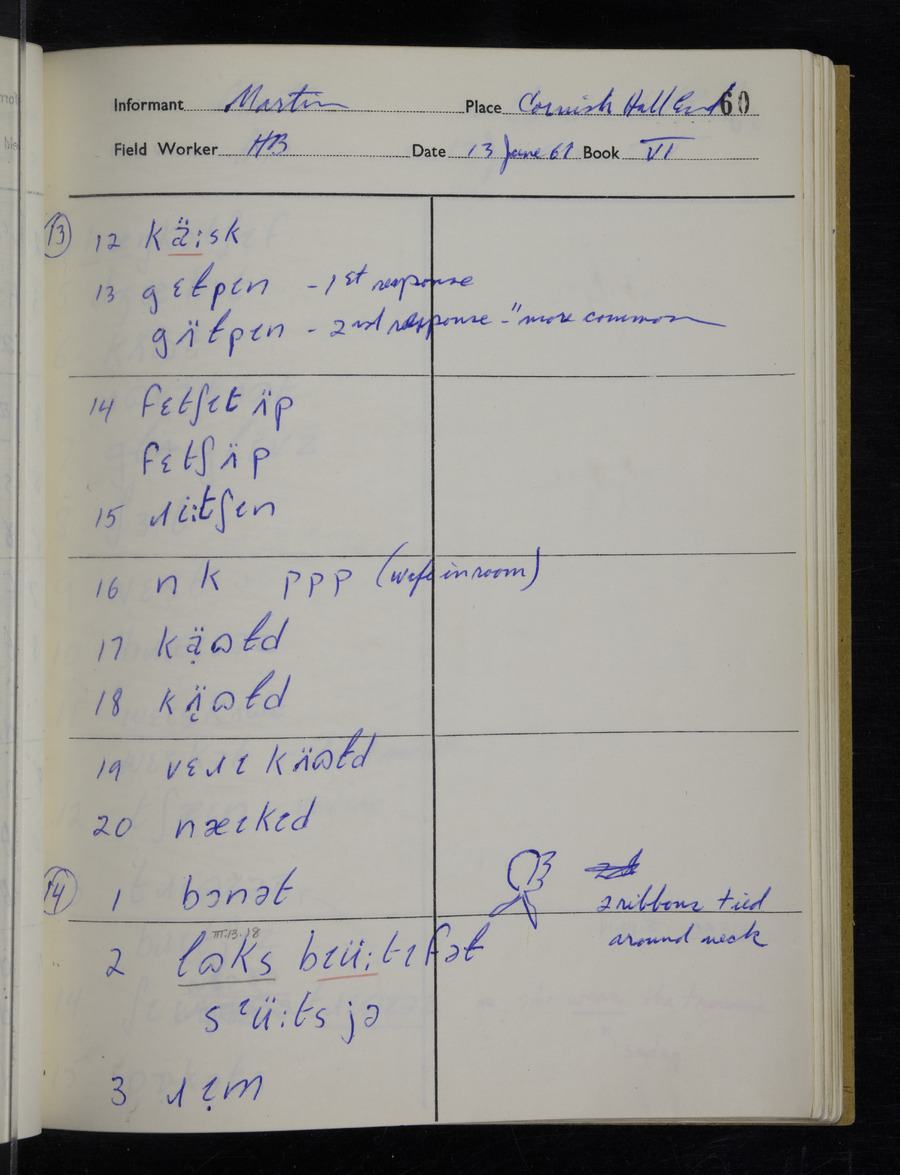 Informant Martin Place Cornish Hall End 60
Field Worker HB Date 13 June 61 Book VI
13 12 kä̤ːsk
13 gɛtpɪn - 1st response
gʌ̈tpɪn - 2nd response - "more common
14 fɛtʃɪt ʌ̈p
fɛtʃ ʌ̈p
15 ɹiːtʃɪn
16 n k ppp (wife in room)
17 kạ̈ɷɫd
18 kʌ̈ɷɫd
19 vɛɹɪ kʌ̈ɷɫd
20 næɪkɪd
14 1 bɔnət
2 ribbons tied
around neck
III.13.18
2 lɷks bɪüːtɪfəɫ
sᶦüːts jə
3 ɹɪ̣m